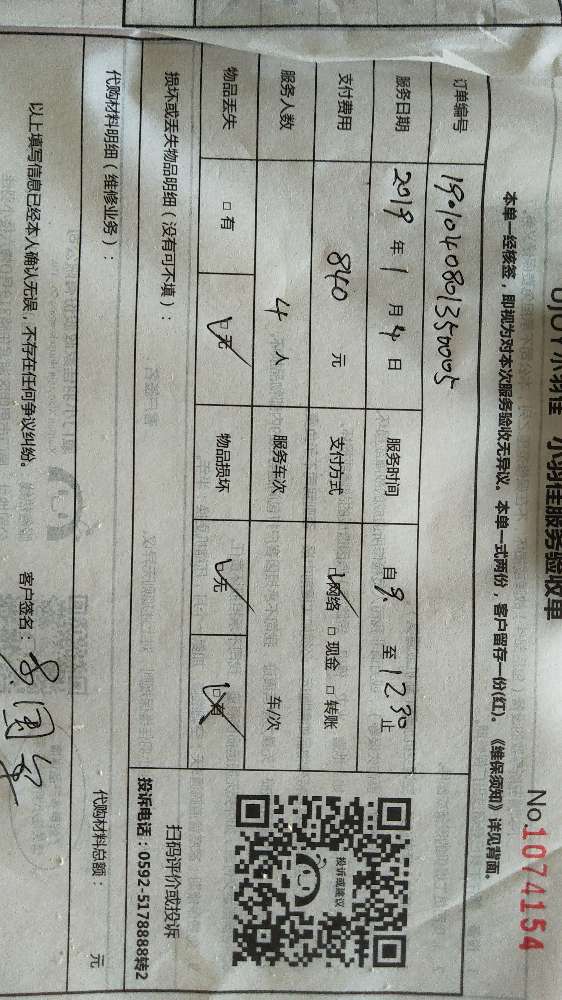 小羽佳 小羽佳服务验收单
No.1074154
本单一经核签，即视为对本次服务验收无异议。本单一式两份，客户留存一份(红)。《维保须知》详见背面。
订单编号 190104080135005
服务日期 2019 年 1 月 4 日 服务时间 自 9. 至 12.30 止
支付费用 840 元 支付方式 □网络 □现金 □转账
服务人数 4 人 服务车次 车/次
物品丢失 □有 □无 物品损坏 □无 □有
损坏或丢失物品明细（没有可不填）：
扫码评价或投诉
投诉或建议
投诉电话：0592-5178888转2
代购材料明细（维修业务）：
代购材料总额： 元
以上填写信息已经本人确认无误，不存在任何争议纠纷。
客户签名：